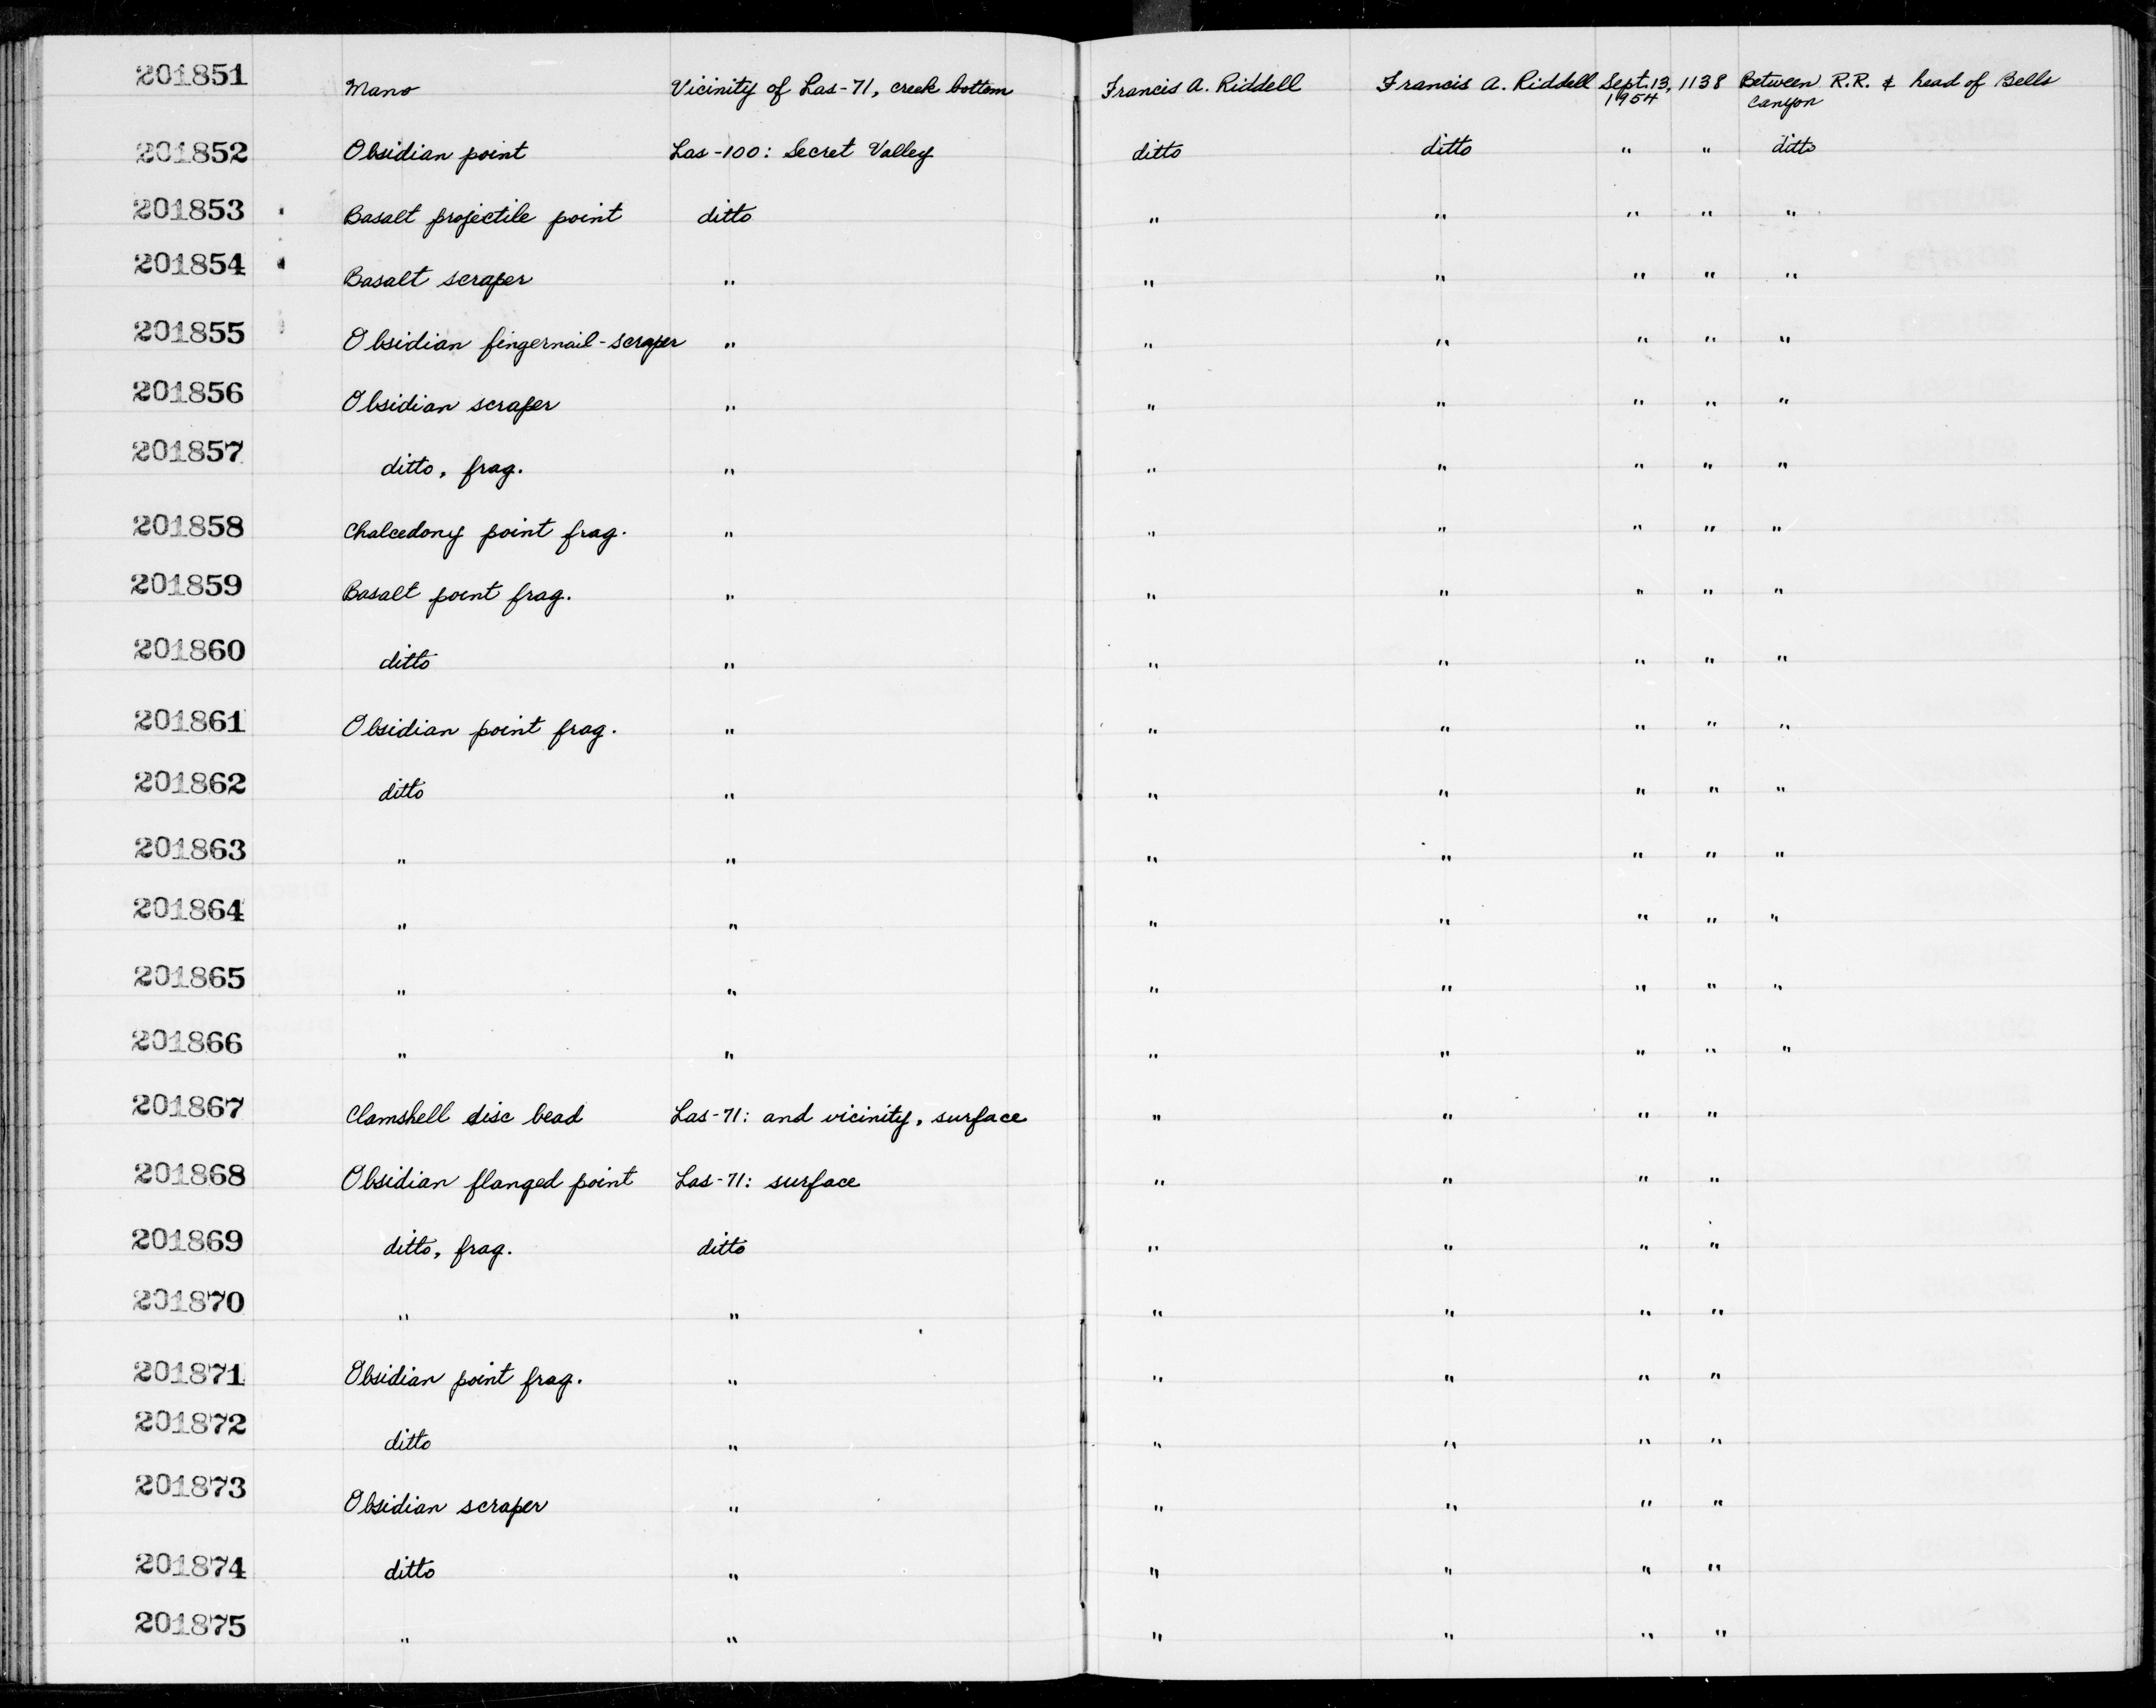 201851 Mano Vicinity of Las-71, creek bottom Francis A. Riddell Francis A. Riddell Sept. 13, 1138 Between R.R. & head of Bells
1954 Canyon
201852 Obsidian point Las-100: Secret Valley ditto ditto " " ditto
201853 Basalt projectile point ditto " " " " "
201854 Basalt scraper " " " " " "
201855 Obsidian fingernail-scraper " " " " " "
201856 Obsidian scraper " " " " " "
201857 ditto, frag. " " " " " "
201858 Chalcedony point frag. " " " " " "
201859 Basalt point frag. " " " " " "
201860 ditto " " " " " "
201861 Obsidian point frag. " " " " " "
201862 ditto " " " " " "
201863 " " " " " " "
201864 " " " " " " "
201865 " " " " " " "
201866 " " " " " " "
201867 Clamshell disc bead Las-71: and vicinity, surface " " " "
201868 Obsidian flanged point Las-71: surface " " " "
201869 ditto, frag. ditto " " " "
201870 " " " " " "
201871 Obsidian point frag. " " " " "
201872 ditto " " " " "
201873 Obsidian scraper " " " " "
201874 ditto " " " " "
201875 " " " " " "